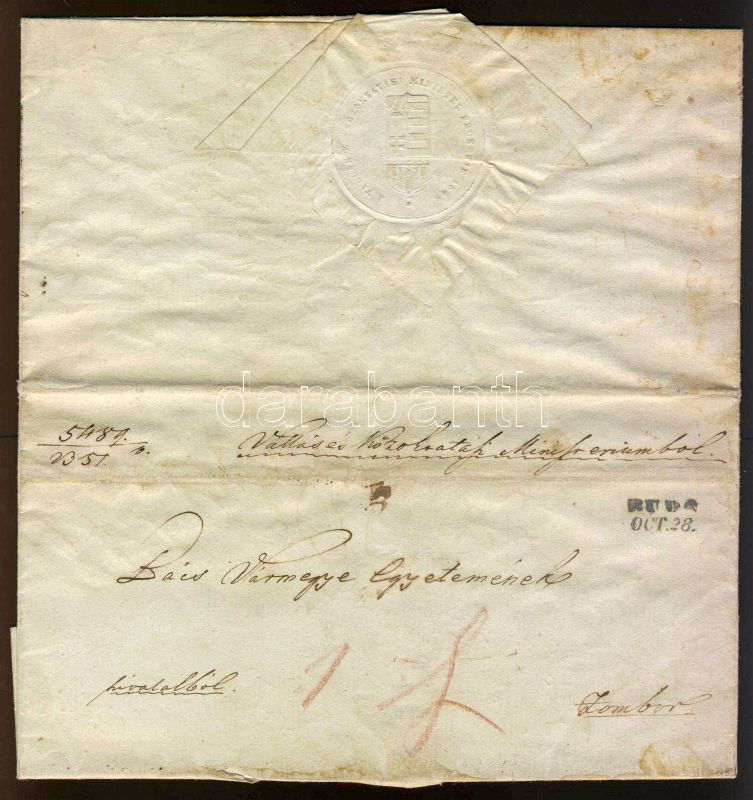 darabanth
5489.
2351.
Vallás és Közoktatás Ministeriumból.
BUDA
OCT.28.
Bács Vármegye Egyetemének
hivatalból.
Zombor.